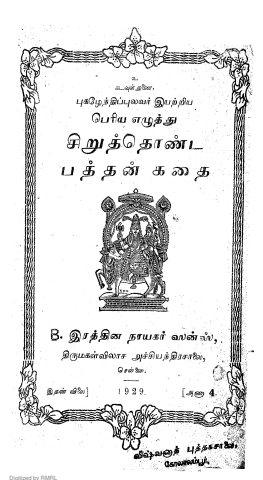 உ
கடவுள் துணை.
புகழேந்திப்புலவர் இயற்றிய
பெரிய எழுத்து
சிறுத்தொண்ட
பத்தன் கதை
B. இரத்தின நாயகர் ஸன்ஸ்,
திருமகள்விலாச அச்சியந்திரசாலை,
சென்னை.
இதன் விலை] 1929. [அணா 4
விஷ்வனாத் புத்தகசாலை,
கோலாலம்பூர்.
Digitized by RMRL